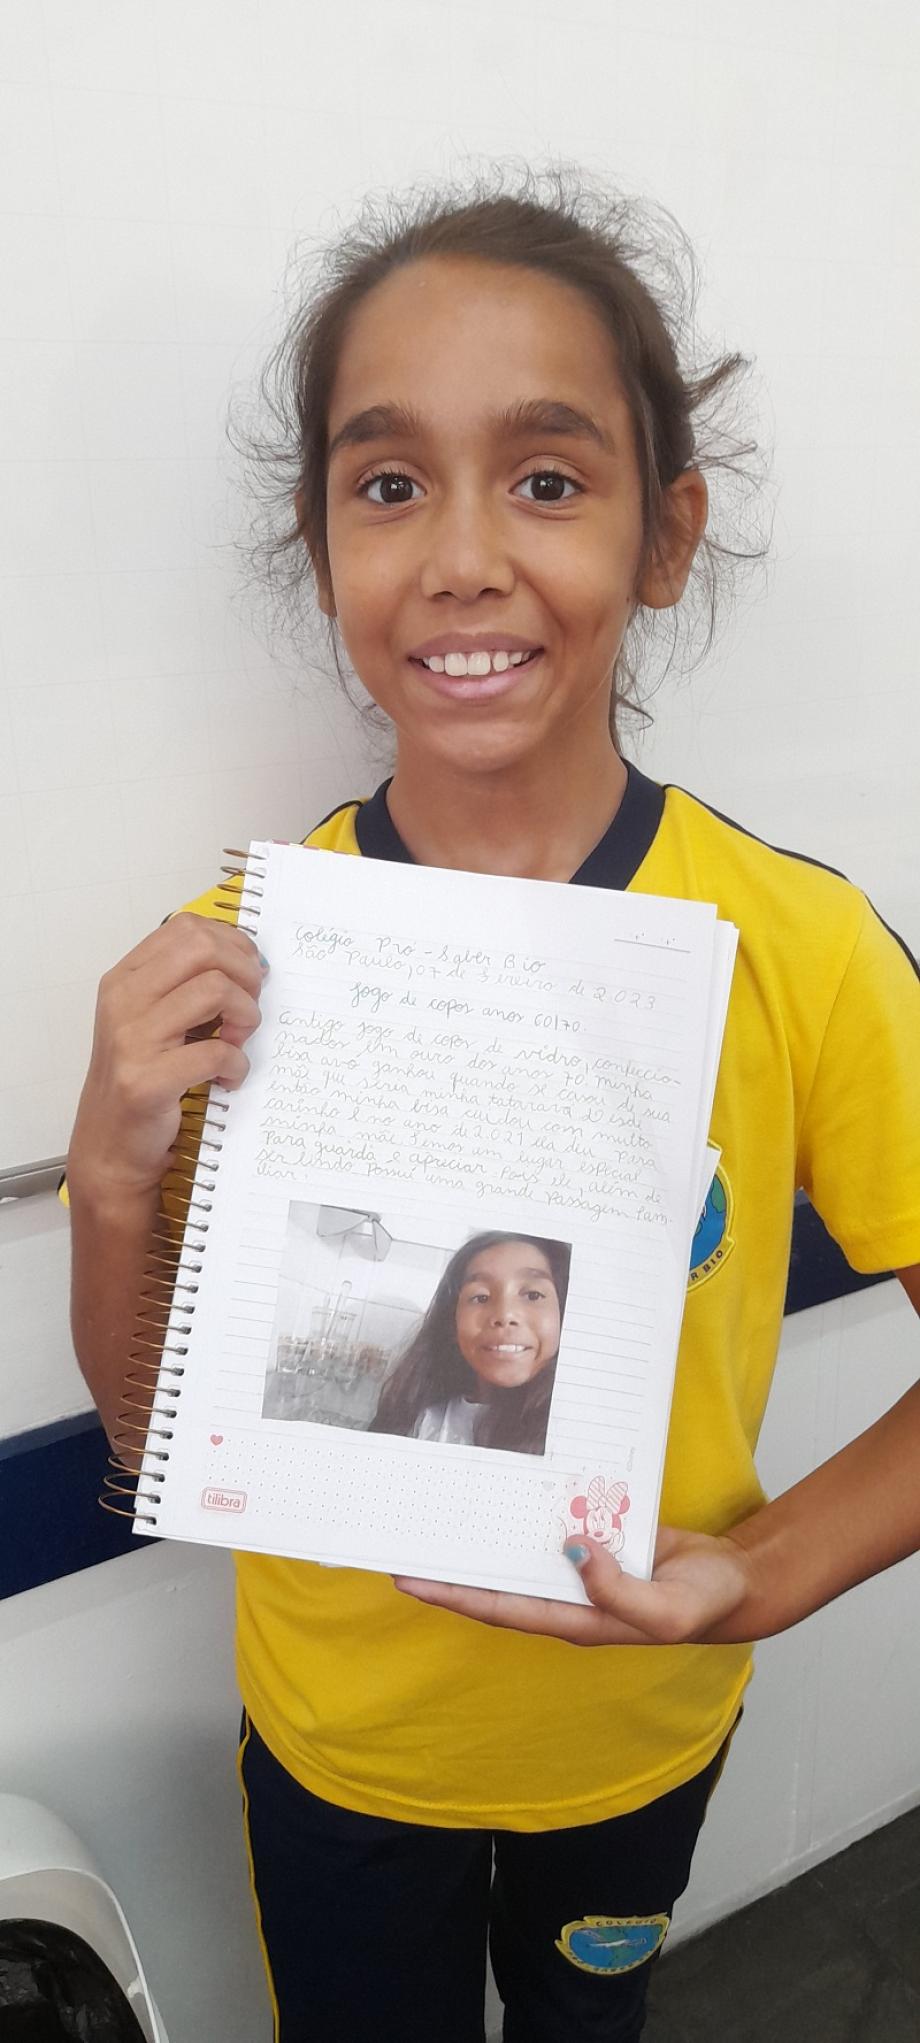 Colégio Pró-Saber Bio
São Paulo, 07 de Fereiro de 2023
Jogo de copos anos 60/70.
Antigo jogo de copos de vidro, confeccio-
nados em ouro dos anos 70. Minha
bisa avó ganhou quando se casou de sua
mãe que seria minha tataravá
então minha bisa cuidou com muito
carinho e no ano de 2.021 ela deu para
minha mãe. Temos um lugar especial
para guarda e apreciar. Pois ele, além de
ser lindo possui uma grande passagem fam-
iliar.
tilibra
R BIO
COLÉGIO